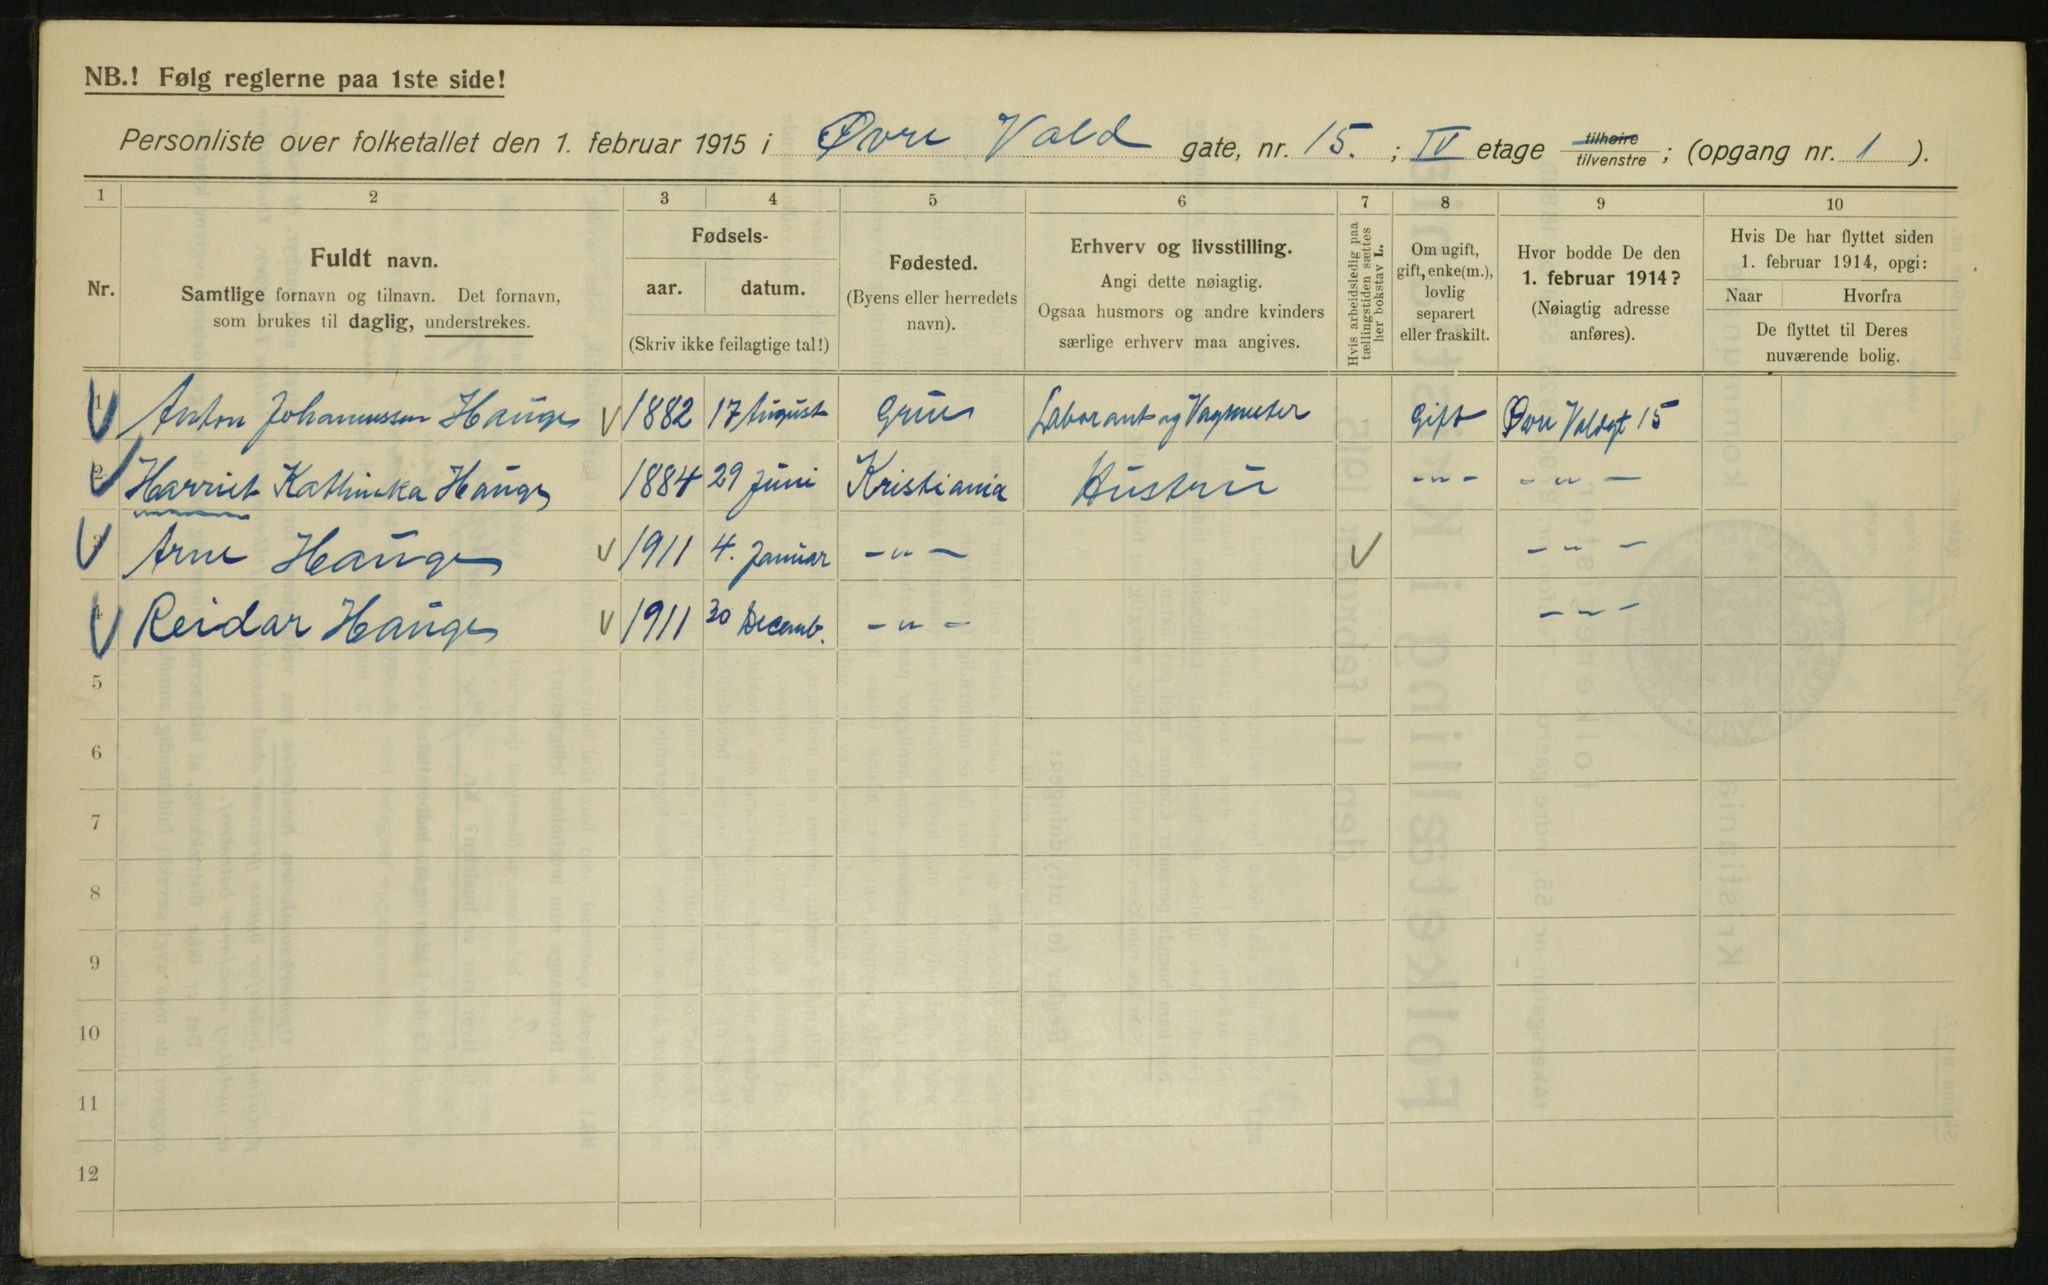 NB.! Følg reglerne paa 1ste side!
Personliste over folketallet den 1. februar 1915 i Øvre Vold gate, nr. 15. ; IV etage tilhøire tilvenstre ; (opgang nr. 1 ).
1 2 3 4 5 6 7 8 9 10
Nr.
Fuldt navn.
Samtlige fornavn og tilnavn. Det fornavn,
som brukes til daglig, understrekes.
Fødsels-
aar. datum.
(Skriv ikke feilagtige tal!)
Fødested.
(Byens eller herredets
navn).
Erhverv og livsstilling.
Angi dette nøiagtig.
Ogsaa husmors og andre kvinders
særlige erhverv maa angives.
Hvis arbeidsledig paa
tællingstiden sættes
her bokstav L.
Om ugift,
gift, enke(m.),
lovlig
separert
eller fraskilt.
Hvor bodde De den
1. februar 1914?
(Nøiagtig adresse
anføres).
Hvis De har flyttet siden
1. februar 1914, opgi:
Naar Hvorfra
De flyttet til Deres
nuværende bolig.
1 Anton Johannessen Hauge 1882 17 August Grue Laborant og Vagmester Gift Øvre Voldgt 15
2 Harriet Kathinka Hauge 1884 29 Juni Kristiania Hustru -"- -"-
3 Arne Hauge 1911 4. Januar -"- -"-
4 Reidar Hauge 1911 30 Decemb. -"- -"-
5
6
7
8
9
10
11
12